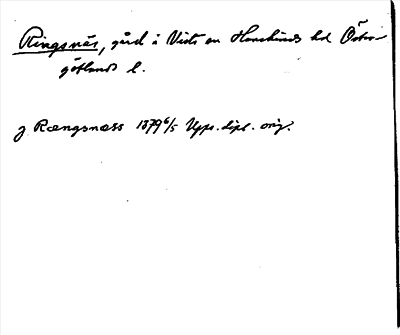 Ringsnäs, gård i Vists sn Hanekinds hd Öster-
götlands l.
J Rængsnæss 1379 6/5 Upps. dipl. orig.